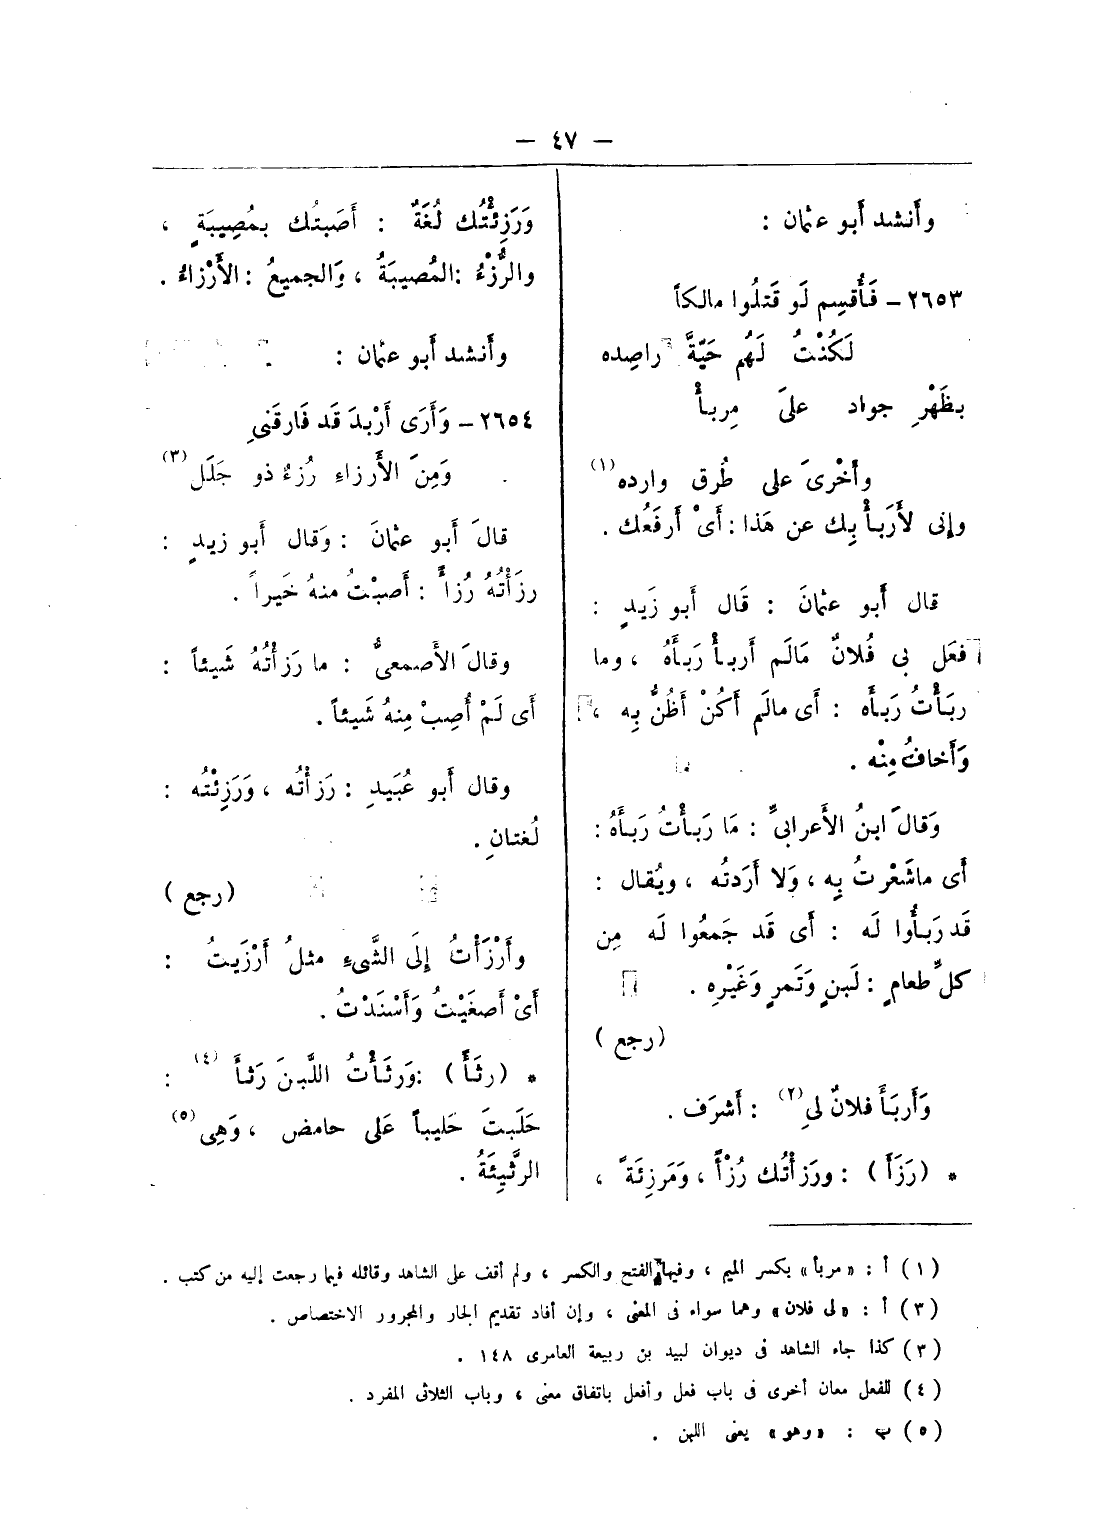 — ٤٧ —
وأنشد أبو عثمان :
٢٦٥٣ – فَأُقسِم لَو قَتلُوا مالكاً
لَكُنْتُ لَهُم حَيّةً راصِده
بظَهْرِ جواد علىَ مِربأْ
وأَخْرىَ على طُرق وارده (١)
وإنى لأَربأْ بِك عن هَذا : أَىْ أرفَعُك .
قال أَبو عثمانَ : قَال أبو زَيدٍ :
فعَل بى فُلانٌ مَالَم أَربأْ رَبأَهُ ، وما
ربَأْتُ رَبأَه : أَى مالَم أَكُنْ أَظُنُّ بِه ،
وَأَخافُ مِنْه .
وَقالَ ابنُ الأَعرابىِّ : مَا رَبأْتُ رَبأَهُ :
أَى ماشَعْرتُ بِه ، وَلا أَرَدتُه ، ويُقال :
قَد رَبأُوا لَه : أَى قَد جَمعُوا لَه مِن
كلِّ طعامٍ : لَبنٍ وَتَمرٍ وَغَيْرِه .
(رجع )
وَأَربَأَ فلانٌ لىِ (٢) : أَشرَف .
* (رَزَأَ ) : ورَزأْتُك رُزْأً ، وَمَرزِئَةً ،
وَرَزِئْتُك لُغَةٌ : أَصَبتُك بمُصِيبَةٍ ،
والرُّزْءُ : المُصيبَةُ ، وَالجميعُ : الأَرْزاءُ .
وأَنشد أَبو عثمان :
٢٦٥٤ – وَأَرَى أَرْبدَ قَد فَارقَنىِ
وَمِنَ الأَرزاءِ رُزءٌ ذو جَلَل (٣)
قالَ أَبو عثمانَ : وَقال أَبو زيدٍ :
رزَأْتُهُ رُزأً : أَصبْتُ منهُ خَيراً .
وقالَ الأَصمعىُّ : ما رَزأْتُهُ شَيئاً :
أَى لَمْ أُصِبْ مِنهُ شَيئاً .
وقال أَبو عُبَيدِ : رَزأتُه ، وَرَزِئْتُه :
لُغتانِ .
(رجع )
وأَرْزَأْتُ إِلَى الشَّىءِ مثلُ أَرْزَيتُ :
أَىْ أَصغَيْتُ وَأَسْنَدْتُ .
* (رثَأَ ) : وَرثَأْتُ اللَّبنَ رَثأَ (٤) :
حَلَبتَ حَليباً عَلى حامض ، وَهِى (٥)
الرَّثِيئَةُ .
(١) أ : «مربأ» بكسر الميم ، وفيها الفتح والكسر ، ولم أقف على الشاهد وقائله فيما رجعت إليه من كتب .
(٣) أ : «لى فلان» وهما سواء فى المعنى ، وإن أفاد تقديم الجار والمجرور الاختصاص .
(٣) كذا جاء الشاهد فى ديوان لبيد بن ربيعة العامرى ١٤٨ .
(٤) للفعل معان أخرى فى باب فعل وأفعل باتفاق معنى ، وباب الثلاثى المفرد .
(٥) ب : «وهو» يعنى اللبن .